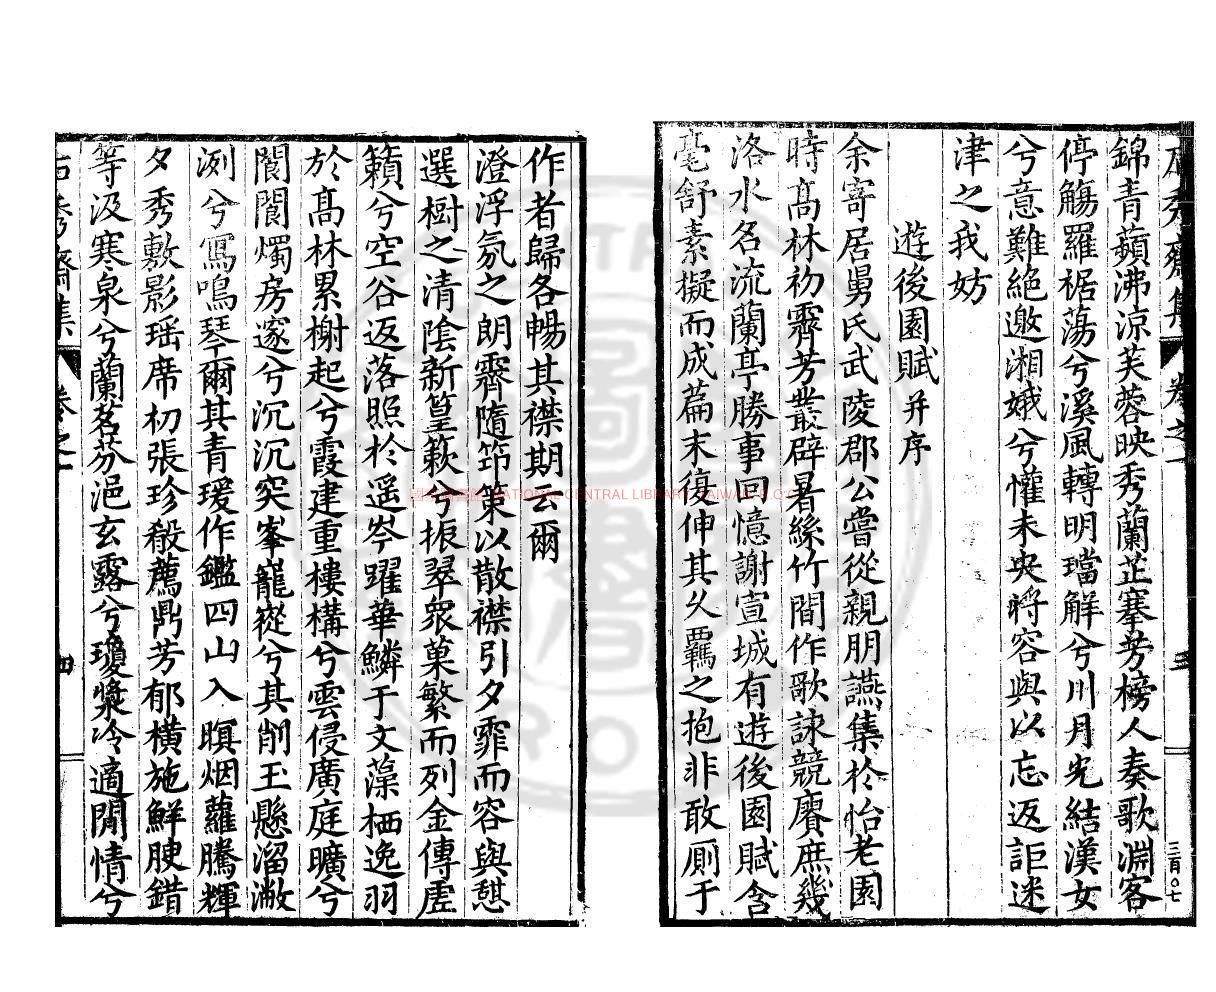 錦青蘋沸凉芙蓉映秀蘭芷搴芳榜人奏歌淵客
停觴羅裾蕩兮溪風轉明璫解兮川月光結漢女
兮意難絶邀湘娥兮懽未央將容與以忘返詎迷
津之我妨
遊後園賦并序
余寄居舅氏武陵郡公嘗從親朋讌集於怡老園
時高林初霽芳叢辟暑絲竹間作歌詠競賡庶幾
洛水名流蘭亭勝事回憶謝宣城有遊後園賦含
毫舒素擬而成篇末復伸其久羈之抱非敢厠于
作者歸各暢其襟期云爾
澄浮氛之朗霽隨筇策以散襟引夕霏而容與憇
選樹之清陰新篁簌兮振翠眾菓繁而列金傳虛
籟兮空谷返落照於遥岑躍華鱗于文藻栖逸羽
於高林累榭起兮霞建重樓構兮雲侵廣庭曠兮
閬閬燭房邃兮沉沉突峯巃嵸兮其削玉懸溜潎
洌兮寫鳴琴爾其青瑗作鑑四山入暝烟蘿騰輝
夕秀敷影瑶席初張珍殽薦鼎芳郁橫施鮮腴錯
等汲寒泉兮蘭茗芬浥玄露兮瓊漿冷適閒情兮
秀齋集 卷之一 四
秀齋集 卷之一 三
三百〇七
NATIONAL CENTRAL LIBRARY, TAIWAN R.O.C